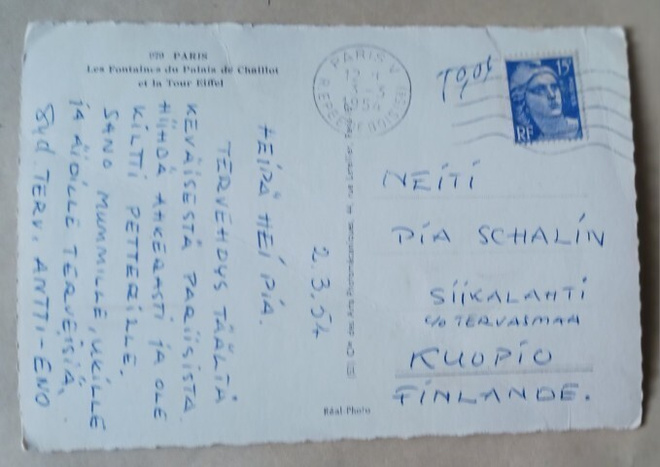 129 PARIS
Les Fontaines du Palais de Chaillot
et la Tour Eiffel
HEIPÄ HEI PIA.
TERVEHDYS TÄÄLTÄ
KEVÄISESTÄ PARIISISTA
HIIHDÄ AHKERASTI JA OLE
KILTTI PETTERILLE,
SANO MUMMILLE, UKILLE
JA ÄIDILLE TERVEISIÄ,
TERV. ANTTI-ENO
2.3.54
Réal-Photo
PARIS V
15F
RF
NEITI
PIA SCHALIN
SIIKALAHTI
c/o TERVASMAA
KUOPIO
FINLANDE.